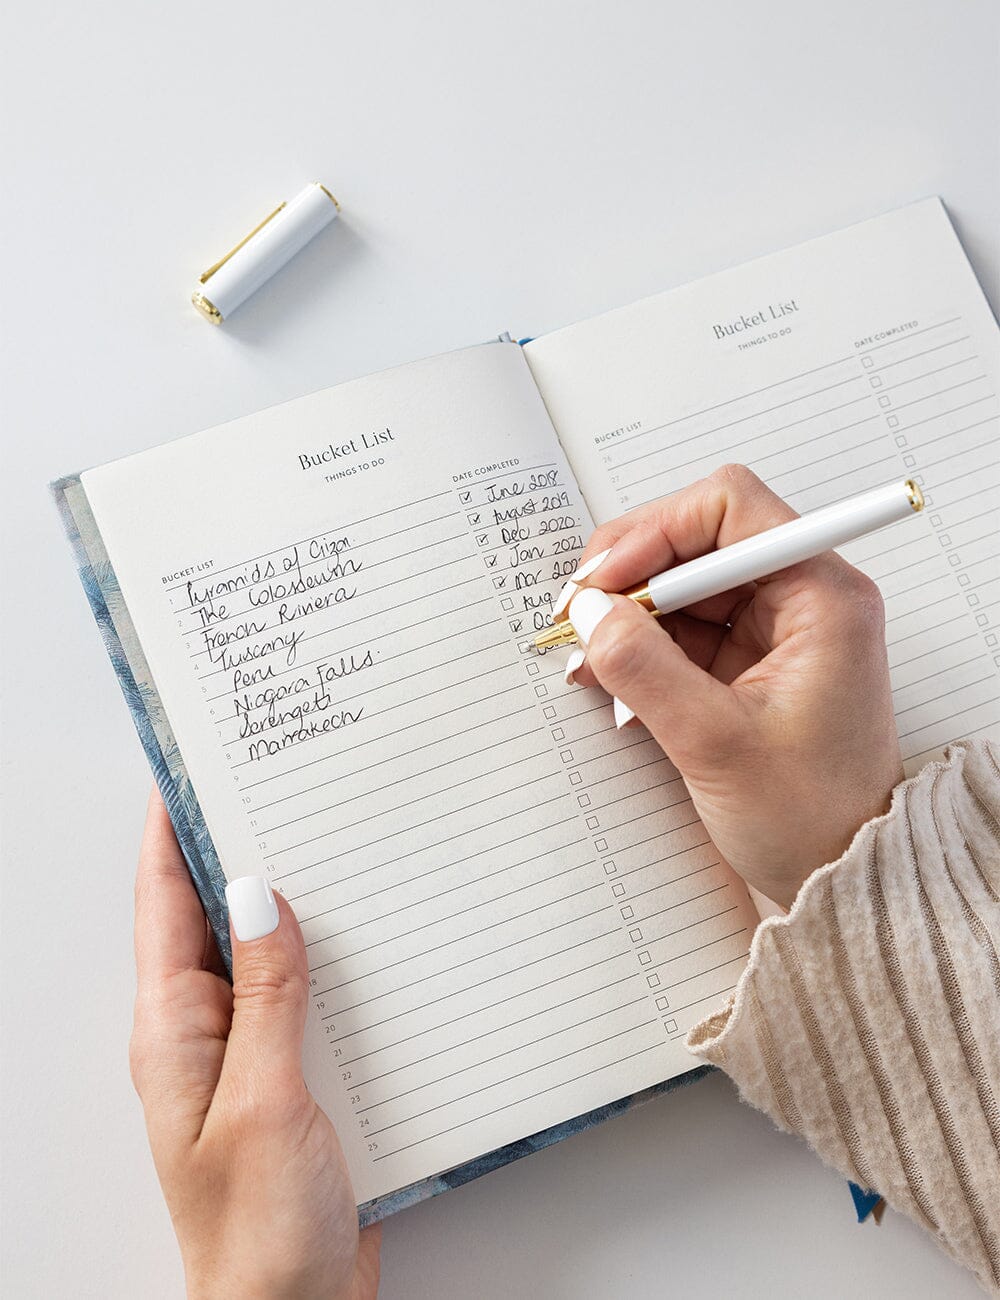 Bucket List
THINGS TO DO
BUCKET LIST
DATE COMPLETED
1 Pyramids of Giza. June 2018
2 The Colosseum August 2019
3 French Riviera Dec 2020.
4 Tuscany Jan 2021
5 Peru Mar
6 Niagara Falls. Aug
7 Serengeti
8 Marrakech
9
10
11
12
13
18
19
20
21
22
23
24
25
Bucket List
THINGS TO DO
BUCKET LIST
DATE COMPLETED
26
27
28